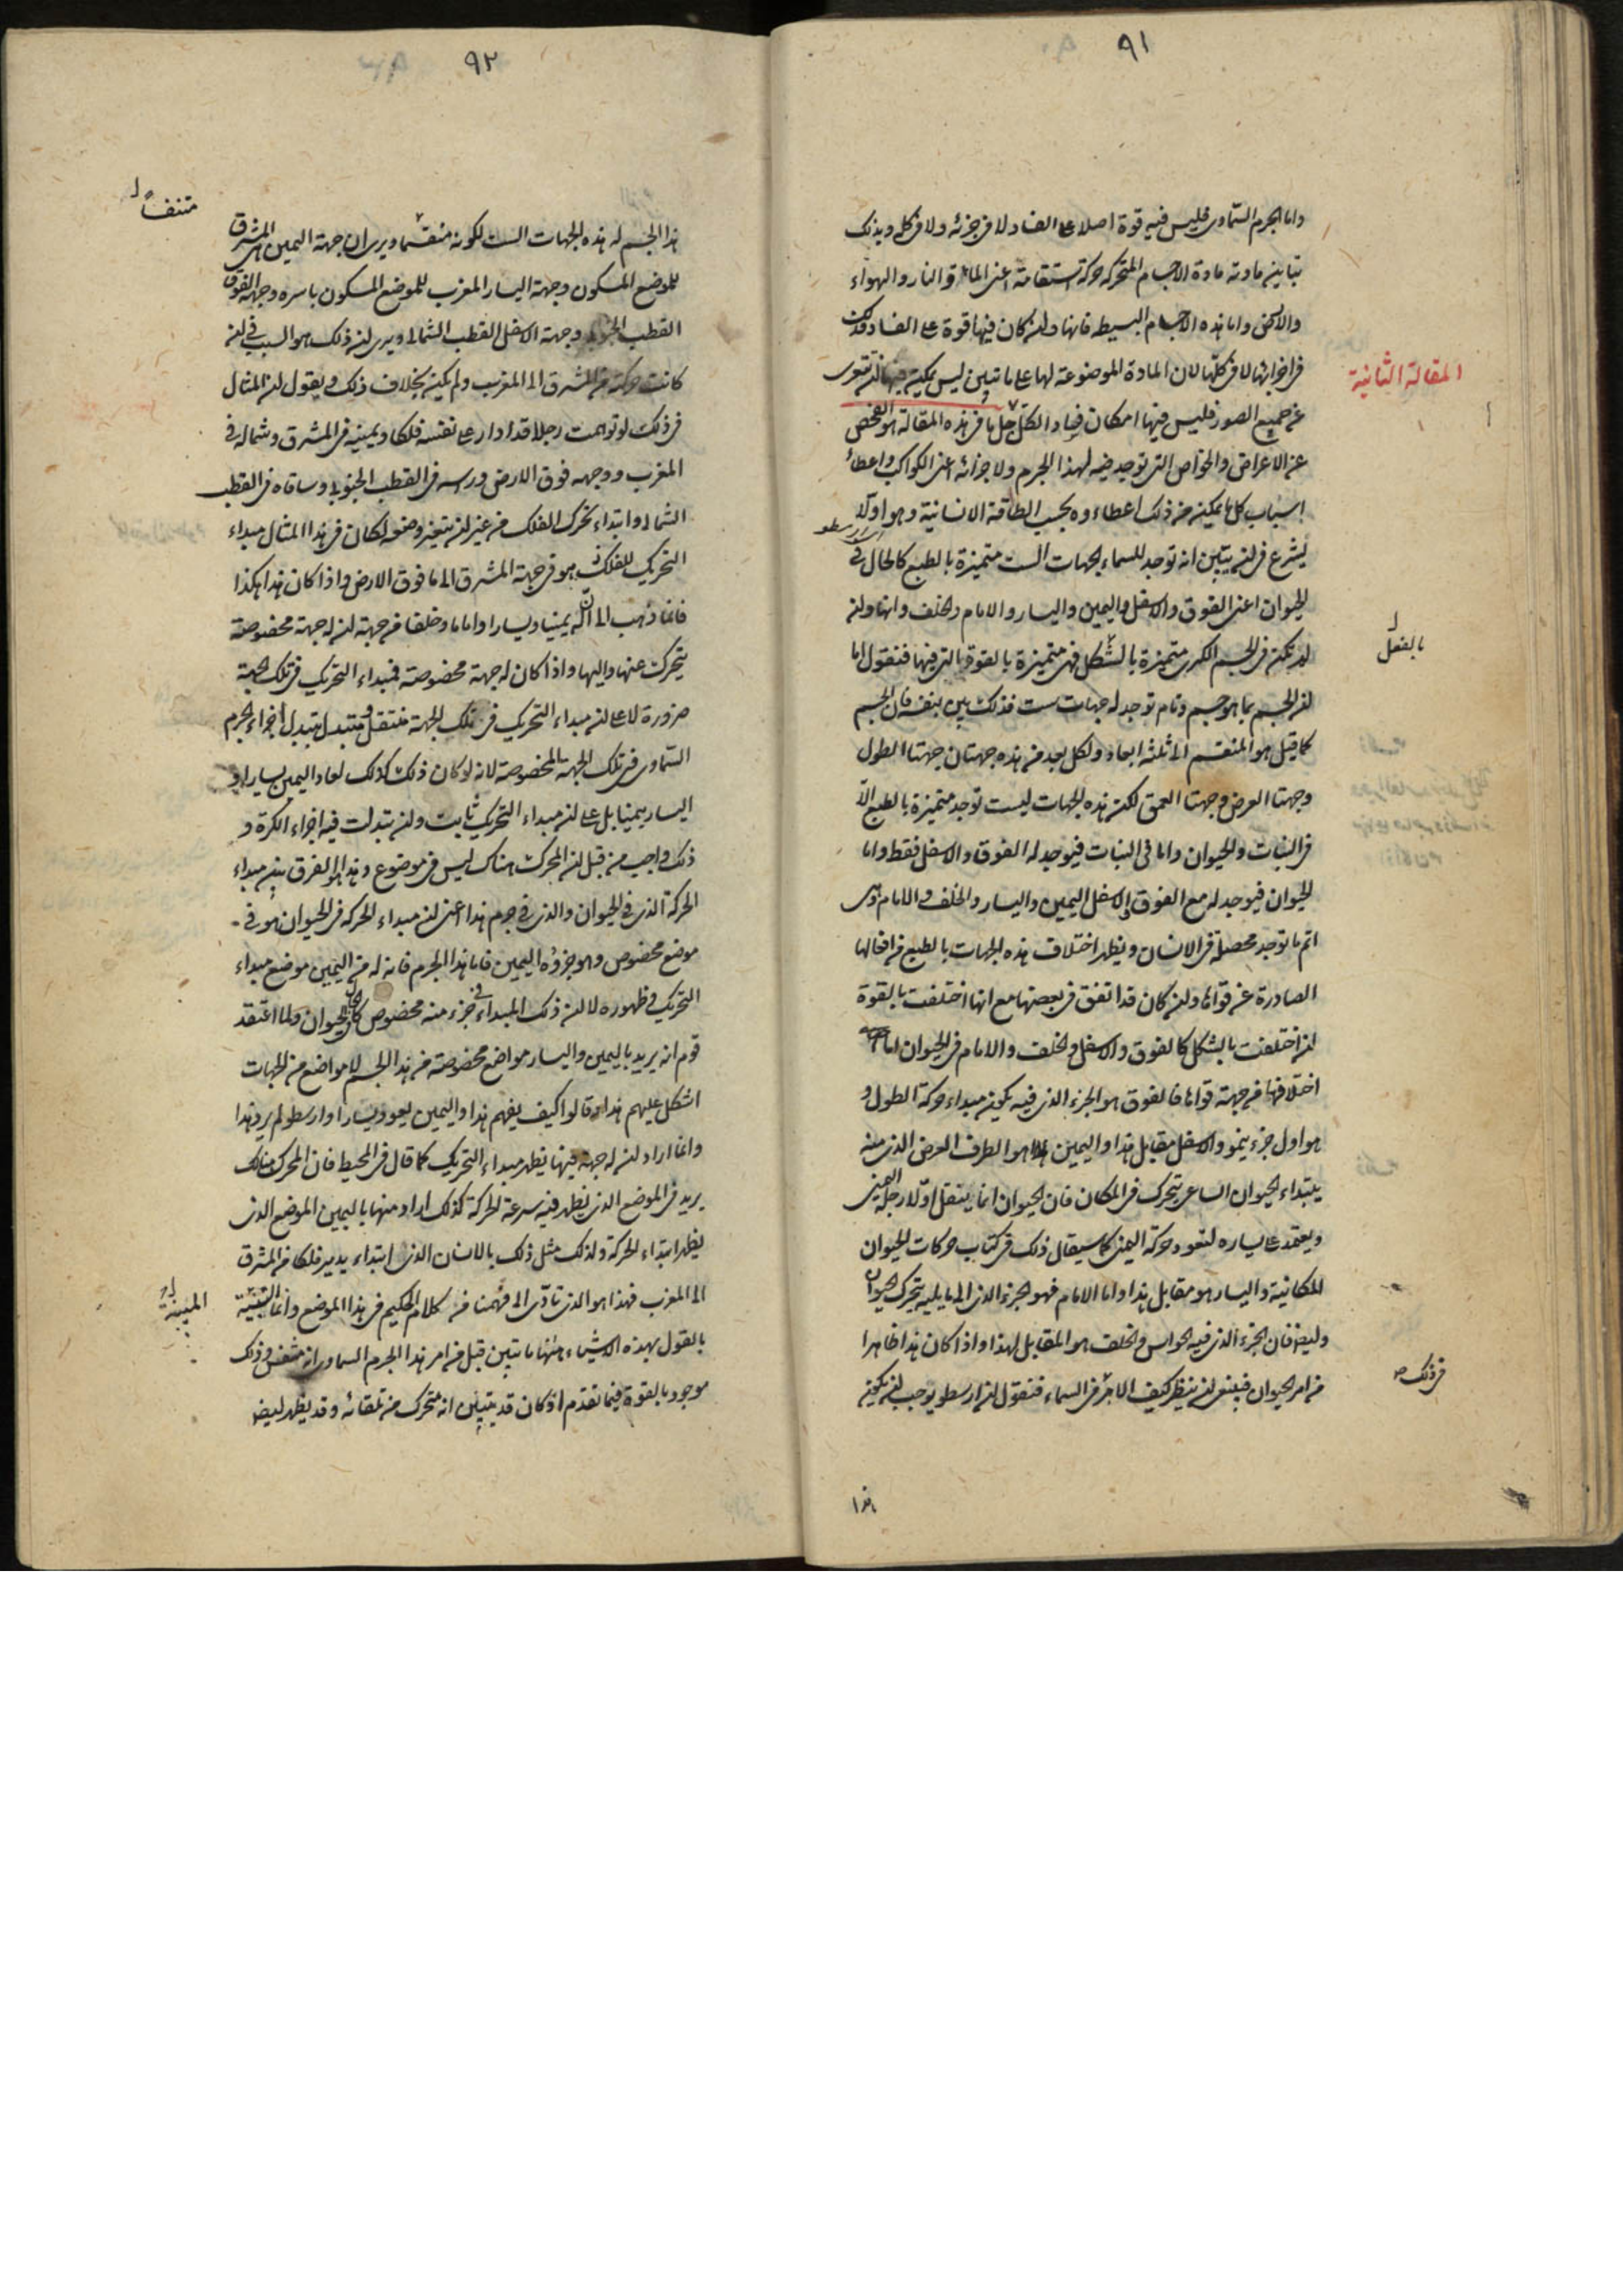 ٩١
واما الجرم السماوى فليس فيه قوة اصلا على الفساد لا فى جزئه ولا فى كله وبذلك
تباين مادته مادة الاجسام المتحركه حركة استقامة اعنى الماء والنار والهواء
والارض واما هذه الاجسام البسيطه فانها وان كان فيها قوة على الفساد فذلك
فى اجزائها لا فى كلها لان المادة الموضوعة لها على ما تبين ليس يمكن فيها ان تتعرى
المقالة الثانية
عن جميع الصور فليس فيها امكان فساد الكل جل ما فى هذه المقالة هو الفحص
عن الاعراض والخواص التى توجد فيه لهذا الجرم ولاجزائه اعنى الكواكب واعطاء
اسباب كل ما يمكن من ذلك اعطاءه بحسب الطاقة الانسانية وهو اولا
ارسطو
يشرع فى ان يتبين انه توجد للسماء الجهات الست متميزة بالطبع كالحال فى
الحيوان اعنى الفوق والاسفل واليمين واليسار والامام والخلف وانها وان
لم تكن فى الجسم الكرى متميزة بالشكل فهى متميزة بالقوة التى فيها فنقول اما
بالفعل
ان الجسم بما هو جسم وتام توجد له جهات ست فذلك بين بنفسه فان الجسم
كما قيل هو المنقسم الى ثلثة ابعاد ولكل بعد من هذه جهتان جهتا الطول
وجهتا العرض وجهتا العمق لكن هذه الجهات ليست توجد متميزة بالطبع الا
فى النبات والحيوان واما فى النبات فيوجد له الفوق والاسفل فقط واما
الحيوان فيوجد له مع الفوق والاسفل اليمين واليسار والخلف والامام وهى
اتم ما توجد محصلة فى الانسان ويظهر اختلاف هذه الجهات بالطبع من افعالها
الصادرة عن قواها وان كان قد اتفق فى بعضها مع انها اختلفت بالقوة
ان اختلفت بالشكل كالفوق والاسفل والخلف والامام فى الحيوان اما
اختلافها من جهة قواها فالفوق هو الجزء الذى فيه يكون مبداء حركة الطول و
هو اول جزء ينمو والاسفل مقابل هذا واليمين هو الطرف العرض الذى منه
يبتداء الحيوان الساعى يتحرك فى المكان فان الحيوان انما ينتقل اولا رجله اليمنى
ويعتمد على يساره لتعود حركة اليمنى كما سيقال ذلك فى كتاب حركات الحيوان
المكانية واليسار هو مقابل هذا واما الامام فهو الجزء الذى الى ما يليه يتحرك الحيوان
وايضا فان الجزء الذى فيه الحواس والخلف هو المقابل لهذا واذا كان هذا ظاهرا
من امر الحيوان فينبغى ان ننظر كيف الامر فى السماء فنقول ان ارسطو يوجب ان يكون
فى ذلك
هذا
٩٢
هذا الجسم له هذه الجهات الست لكونه منقسما ويرى ان جهة اليمين هى المشرق
متنفسا
للموضع المسكون وجهة اليسار المغرب للموضع المسكون باسره وجهة الفوق
القطب الجنوبى وجهة الاسفل القطب الشمالى ويرى ان ذلك هو السبب فى ان
كانت حركته من المشرق الى المغرب ولم يكن بخلاف ذلك ويقول ان المثال
فى ذلك لو توهمت رجلا قد ادار على نفسه فلكا ويمينه فى المشرق وشماله فى
المغرب ووجهه فوق الارض وراسه فى القطب الجنوبى وساقاه فى القطب
الشمالى وابتداء تحرك الفلك من غير ان يتغير وضعه لكان فى هذا المثال مبداء
التحريك للفلك هو فى جهة المشرق الى ما فوق الارض واذا كان هذا هكذا
فانما ذهب الى ان له يمينا ويسارا واماما وخلفا من جهة ان له جهة مخصوصة
يتحرك عنها واليها واذا كان له جهة مخصوصة فمبداء التحريك فى تلك الجهة
ضرورة لا على ان مبداء التحريك فى تلك الجهة منتقل ومتبدل بتبدل اجزاء الجرم
السماوى فى تلك الجهة المخصوصة لانه لو كان ذلك كذلك لعاد اليمين يسارا و
اليسار يمينا بل على ان مبداء التحريك ثابت وان تبدلت فيه اجزاء الكرة و
ذلك واجب من قبل ان المحرك هناك ليس فى موضوع وهذا هو الفرق بين مبداء
الحركة الذى فى الحيوان والذى فى جرم هذا اعنى ان مبداء الحركة فى الحيوان هو فى
موضع مخصوص وهو جزؤه اليمين فاما هذا الجرم فانه له من اليمين موضع مبداء
التحريك فى ظهوره لا ان ذلك المبداء فى جزء منه مخصوص كالحال فى الحيوان ولما اعتقد
قوم انه يريد باليمين واليسار مواضع مخصوصة من هذا الجسم لا مواضع من الجهات
اشكل عليهم هذا وقالوا كيف يفهم هذا واليمين يعود يسارا وارسطو لم يرد هذا
وانما اراد ان له جهة فيها يظهر مبداء التحريك كما قال فى المحيط فان المحرك هنالك
يريد فى الموضع الذى يظهر فيه سرعة الحركة كذلك اراد منها باليمين الموضع الذى
يظهر ابتداء الحركة ولذلك مثل ذلك بالانسان الذى ابتداء يدير فلكا من المشرق
الى المغرب فهذا هو الذى تادى الى فهمنا من كلام الحكيم فى هذا الموضع وانما
المبينة
بالقول بهذه الاشياء هنا ما تبين قبل من امر هذا الجرم السماوى انه متنفس وذلك
موجود بالقوة فيما تقدم اذ كان قد يتبين انه متحرك من تلقائه وقد يظهر ايضا